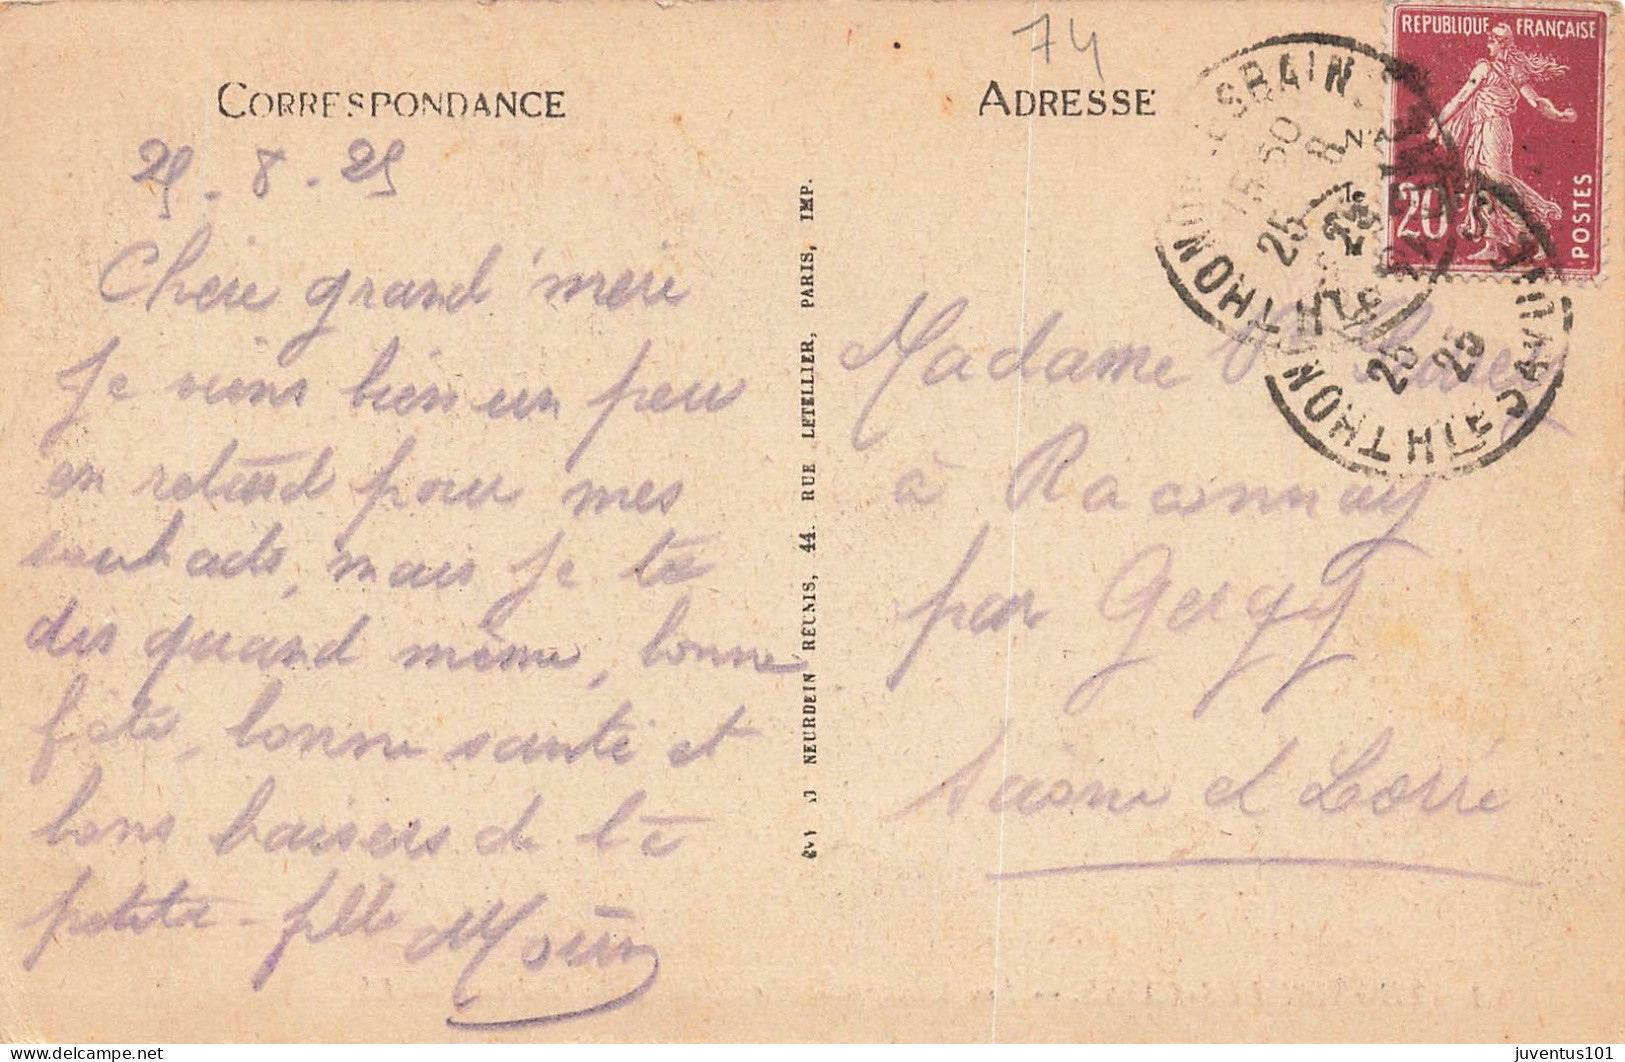 74
CORRESPONDANCE
ADRESSE
25 - 8 - 25
Chère grand'mère
Je viens bien un peu
en retard pour mes
souhaits, mais je te
dis quand même, bonne
fête, bonne santé et
bons baisers de ta
petite-fille
NEURDEIN RÉUNIS, 44. RUE LETELLIER, PARIS, IMP.
REPUBLIQUE FRANÇAISE
20c
POSTES
THONON-LES-BAINS
15 30
25
HTE SAVOIE
Madame
à Raconnay
par Gergy
Saône et Loire
delcampe.net
juventus101